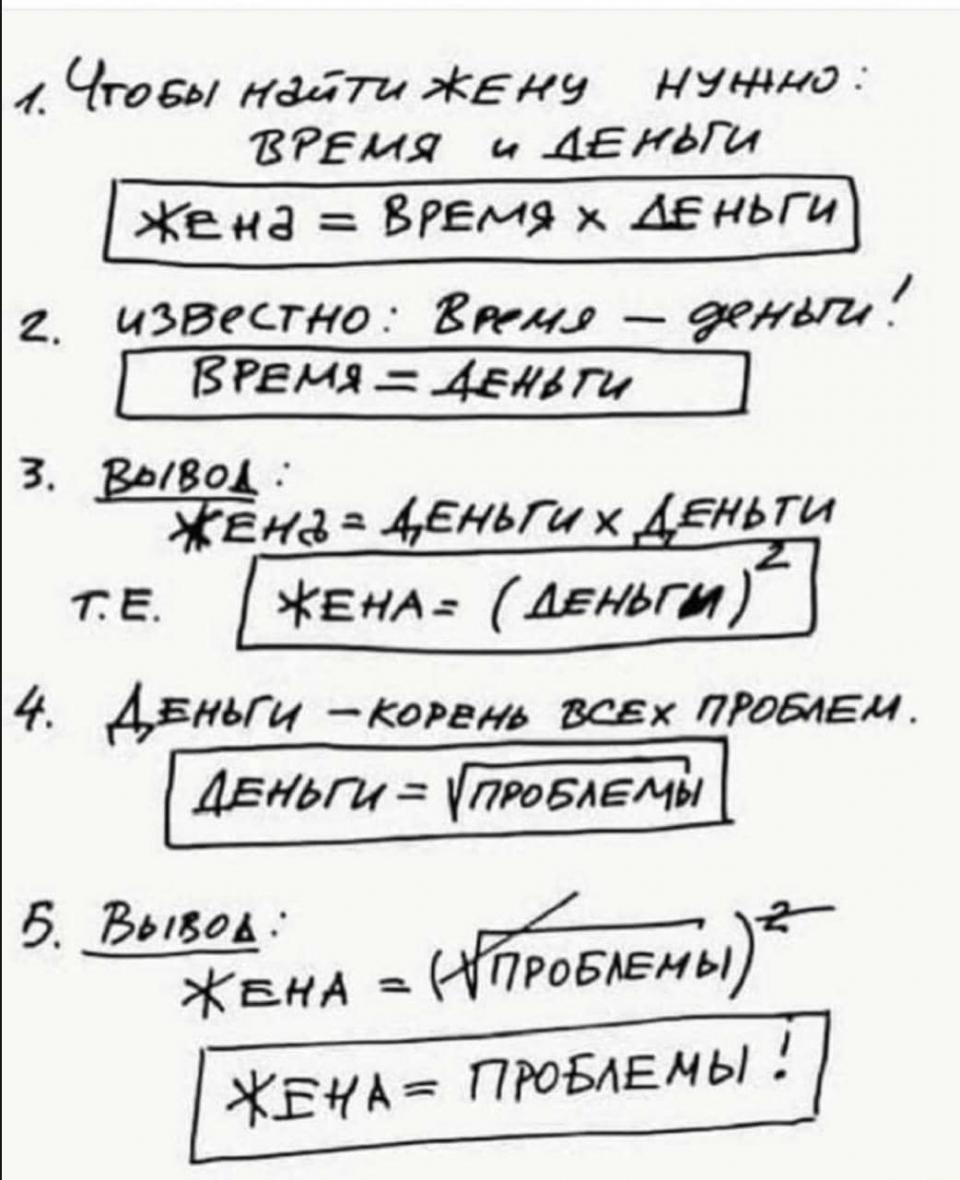 1. Чтобы найти жену нужно:
время и деньги
Жена = время x деньги
2. известно: Время – деньги!
Время = деньги
3. Вывод:
Жена = деньги x деньги
т.е. Жена = (деньги)²
4. Деньги – корень всех проблем.
Деньги = √проблемы
5. Вывод:
Жена = (√проблемы)²
Жена = проблемы!